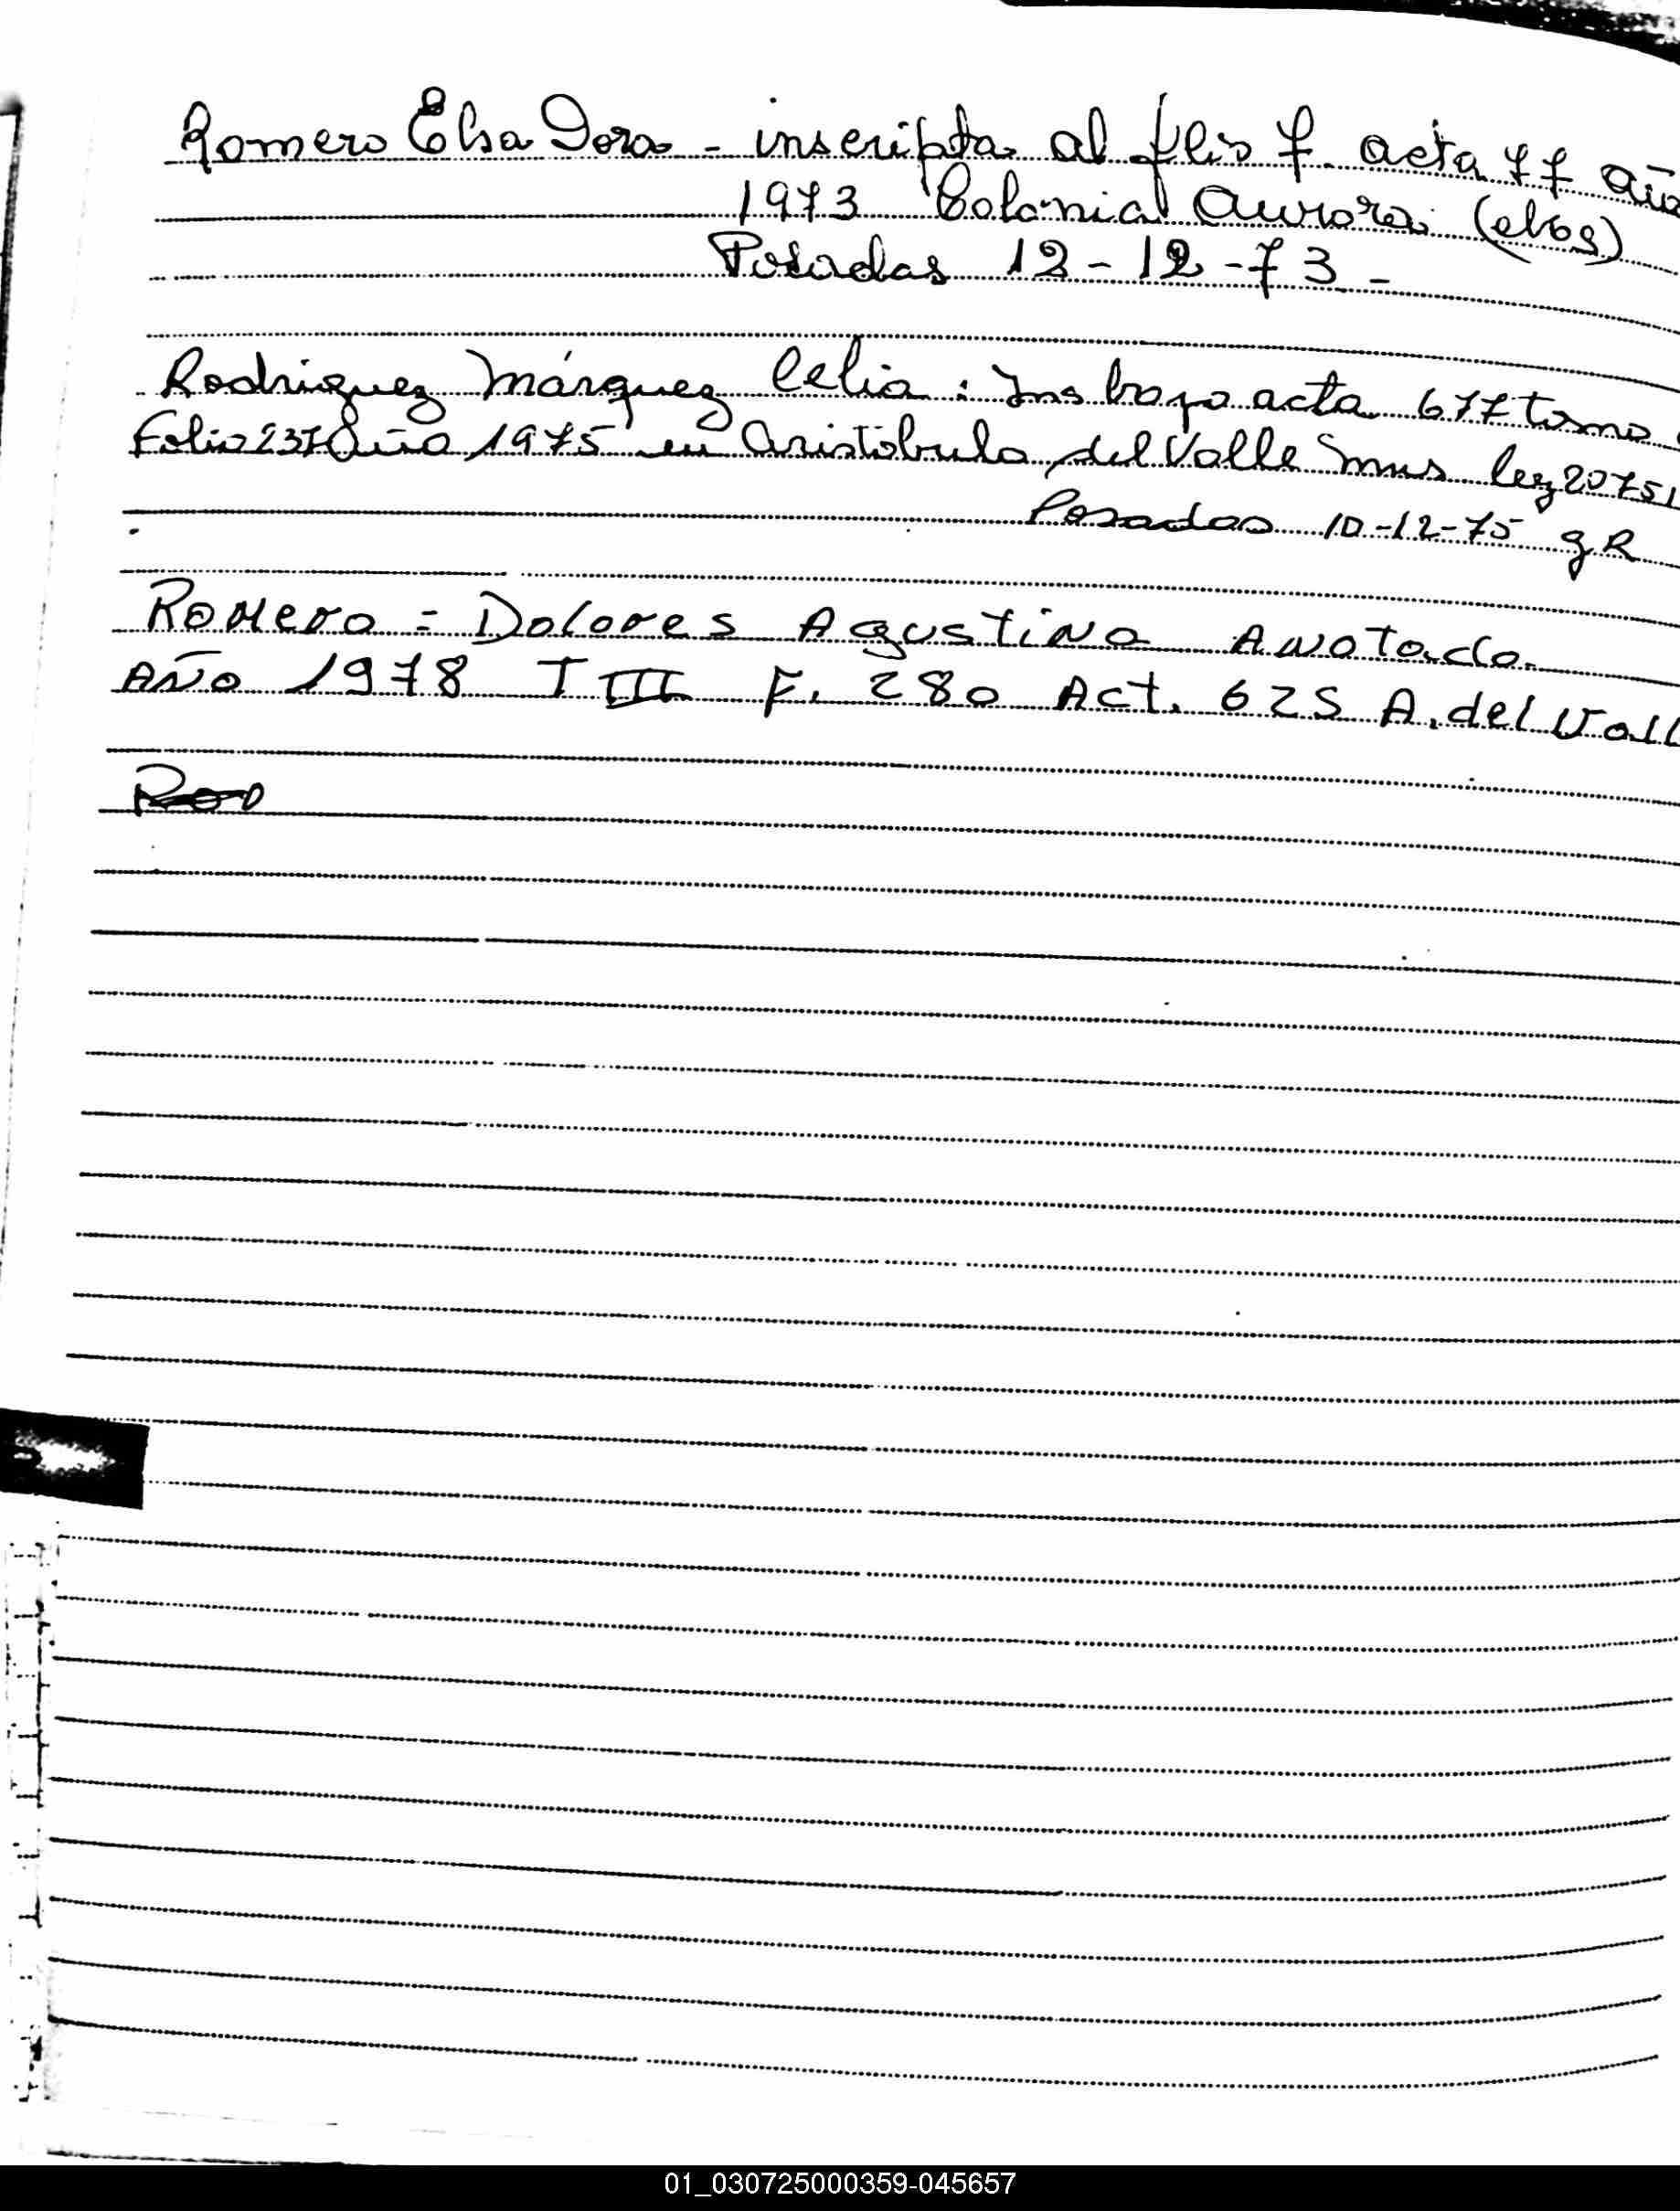 Romero Elsa Dora - inscripta al flio 7. acta 77 año
1973 Colonia Aurora (ebos)
Posadas 12-12-73.-
Rodriguez Márquez Celia: Ins bajo acta 677 tomo
Folio 237 Año 1975 en Aristóbulo del Valle Smns ley 20751
Posadas 10-12-75 gR
Romero = Dolores Agustina Anotada
AÑO 1978 T III F. 280 Act. 625 A. del Vall
01_030725000359-045657